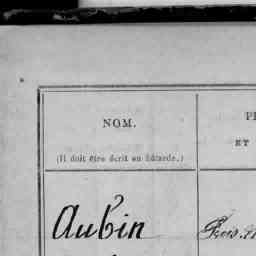 NOM.
(Il doit être écrit en bâtarde.)
ET
Aubin